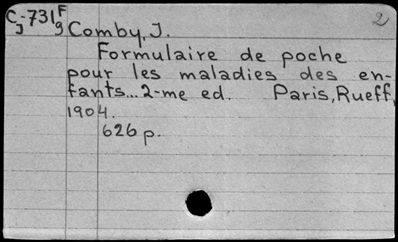 C-731F 2
J 9 Comby, J.
Formulaire de poche
pour les maladies des en-
fants... 2-me ed. Paris, Rueff,
1904.
626 p.